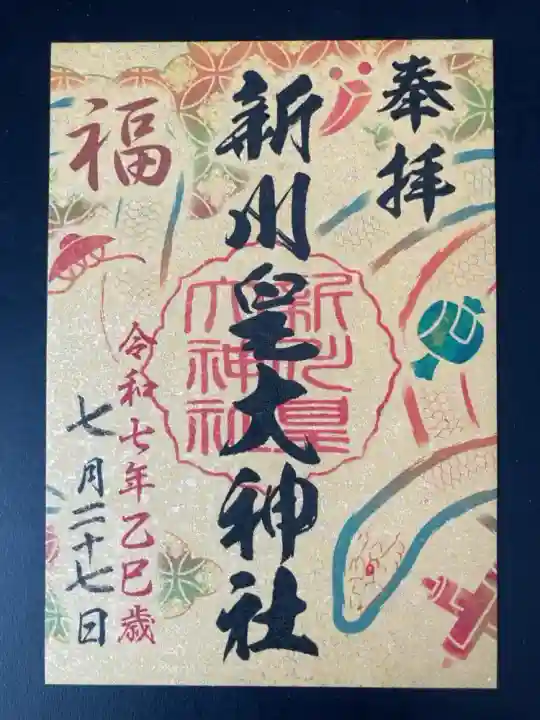 奉拝
新川皇大神社
新川皇
大神社
福
令和七年乙巳歳
七月二十七日